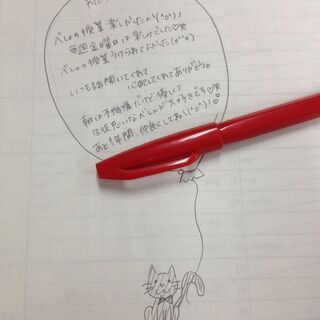 べしょの授業 楽しかったよ\(^o^)ノ
毎週金曜日は楽しみでした♡
べしょの授業うけられてよかった(>_<)
いつも話聞いてくれて
心配してくれてありがとう。
朝は不機嫌だけど優しくて
生徒思いなべしょが大好きです♡
あと1年間、仲良くしてね\(^o^)/♡